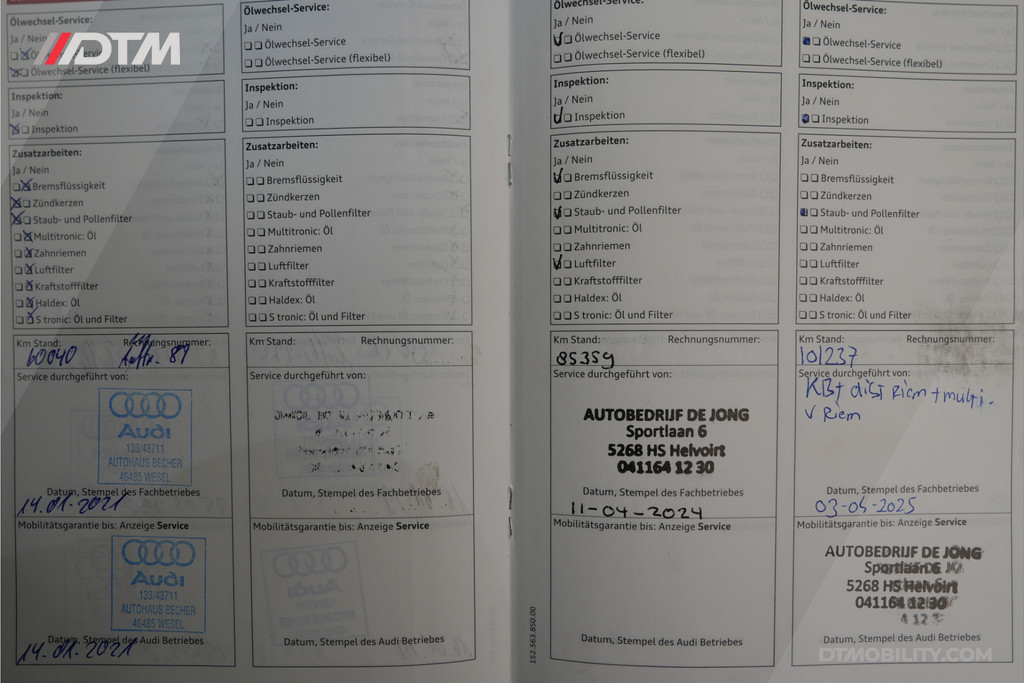 DTM
Ölwechsel-Service:
Ja / Nein
Ölwechsel-Service (flexibel)
Inspektion:
Ja / Nein
Inspektion
Zusatzarbeiten:
Ja / Nein
Bremsflüssigkeit
Zündkerzen
Staub- und Pollenfilter
Multitronic: Öl
Zahnriemen
Luftfilter
Kraftstofffilter
Haldex: Öl
S tronic: Öl und Filter
Km Stand: Rechnungsnummer:
60040
Service durchgeführt von:
Audi
133/43711
AUTOHAUS BECHER
46485 WESEL
Datum, Stempel des Fachbetriebes
14.01.2021
Mobilitätsgarantie bis: Anzeige Service
Audi
133/43711
AUTOHAUS BECHER
46485 WESEL
Datum, Stempel des Audi Betriebes
14.01.2021
Ölwechsel-Service:
Ja / Nein
Ölwechsel-Service
Ölwechsel-Service (flexibel)
Inspektion:
Ja / Nein
Inspektion
Zusatzarbeiten:
Ja / Nein
Bremsflüssigkeit
Zündkerzen
Staub- und Pollenfilter
Multitronic: Öl
Zahnriemen
Luftfilter
Kraftstofffilter
Haldex: Öl
S tronic: Öl und Filter
Km Stand: Rechnungsnummer:
Service durchgeführt von:
Datum, Stempel des Fachbetriebes
Mobilitätsgarantie bis: Anzeige Service
Datum, Stempel des Audi Betriebes
Ölwechsel-Service:
Ja / Nein
Ölwechsel-Service
Ölwechsel-Service (flexibel)
Inspektion:
Ja / Nein
Inspektion
Zusatzarbeiten:
Ja / Nein
Bremsflüssigkeit
Zündkerzen
Staub- und Pollenfilter
Multitronic: Öl
Zahnriemen
Luftfilter
Kraftstofffilter
Haldex: Öl
S tronic: Öl und Filter
Km Stand: Rechnungsnummer:
85359
Service durchgeführt von:
AUTOBEDRIJF DE JONG
Sportlaan 6
5268 HS Helvoirt
041164 12 30
Datum, Stempel des Fachbetriebes
11-04-2024
Mobilitätsgarantie bis: Anzeige Service
Datum, Stempel des Audi Betriebes
152.563.850.00
Ölwechsel-Service:
Ja / Nein
Ölwechsel-Service
Ölwechsel-Service (flexibel)
Inspektion:
Ja / Nein
Inspektion
Zusatzarbeiten:
Ja / Nein
Bremsflüssigkeit
Zündkerzen
Staub- und Pollenfilter
Multitronic: Öl
Zahnriemen
Luftfilter
Kraftstofffilter
Haldex: Öl
S tronic: Öl und Filter
Km Stand: Rechnungsnummer:
101237
Service durchgeführt von:
KBt dist Riem + multi.
v Riem
Datum, Stempel des Fachbetriebes
03-05-2025
Mobilitätsgarantie bis: Anzeige Service
AUTOBEDRIJF DE JONG
Sportlaan 6
5268 HS Helvoirt
041164 12 30
Datum, Stempel des Audi Betriebes
DTMOBILITY.COM